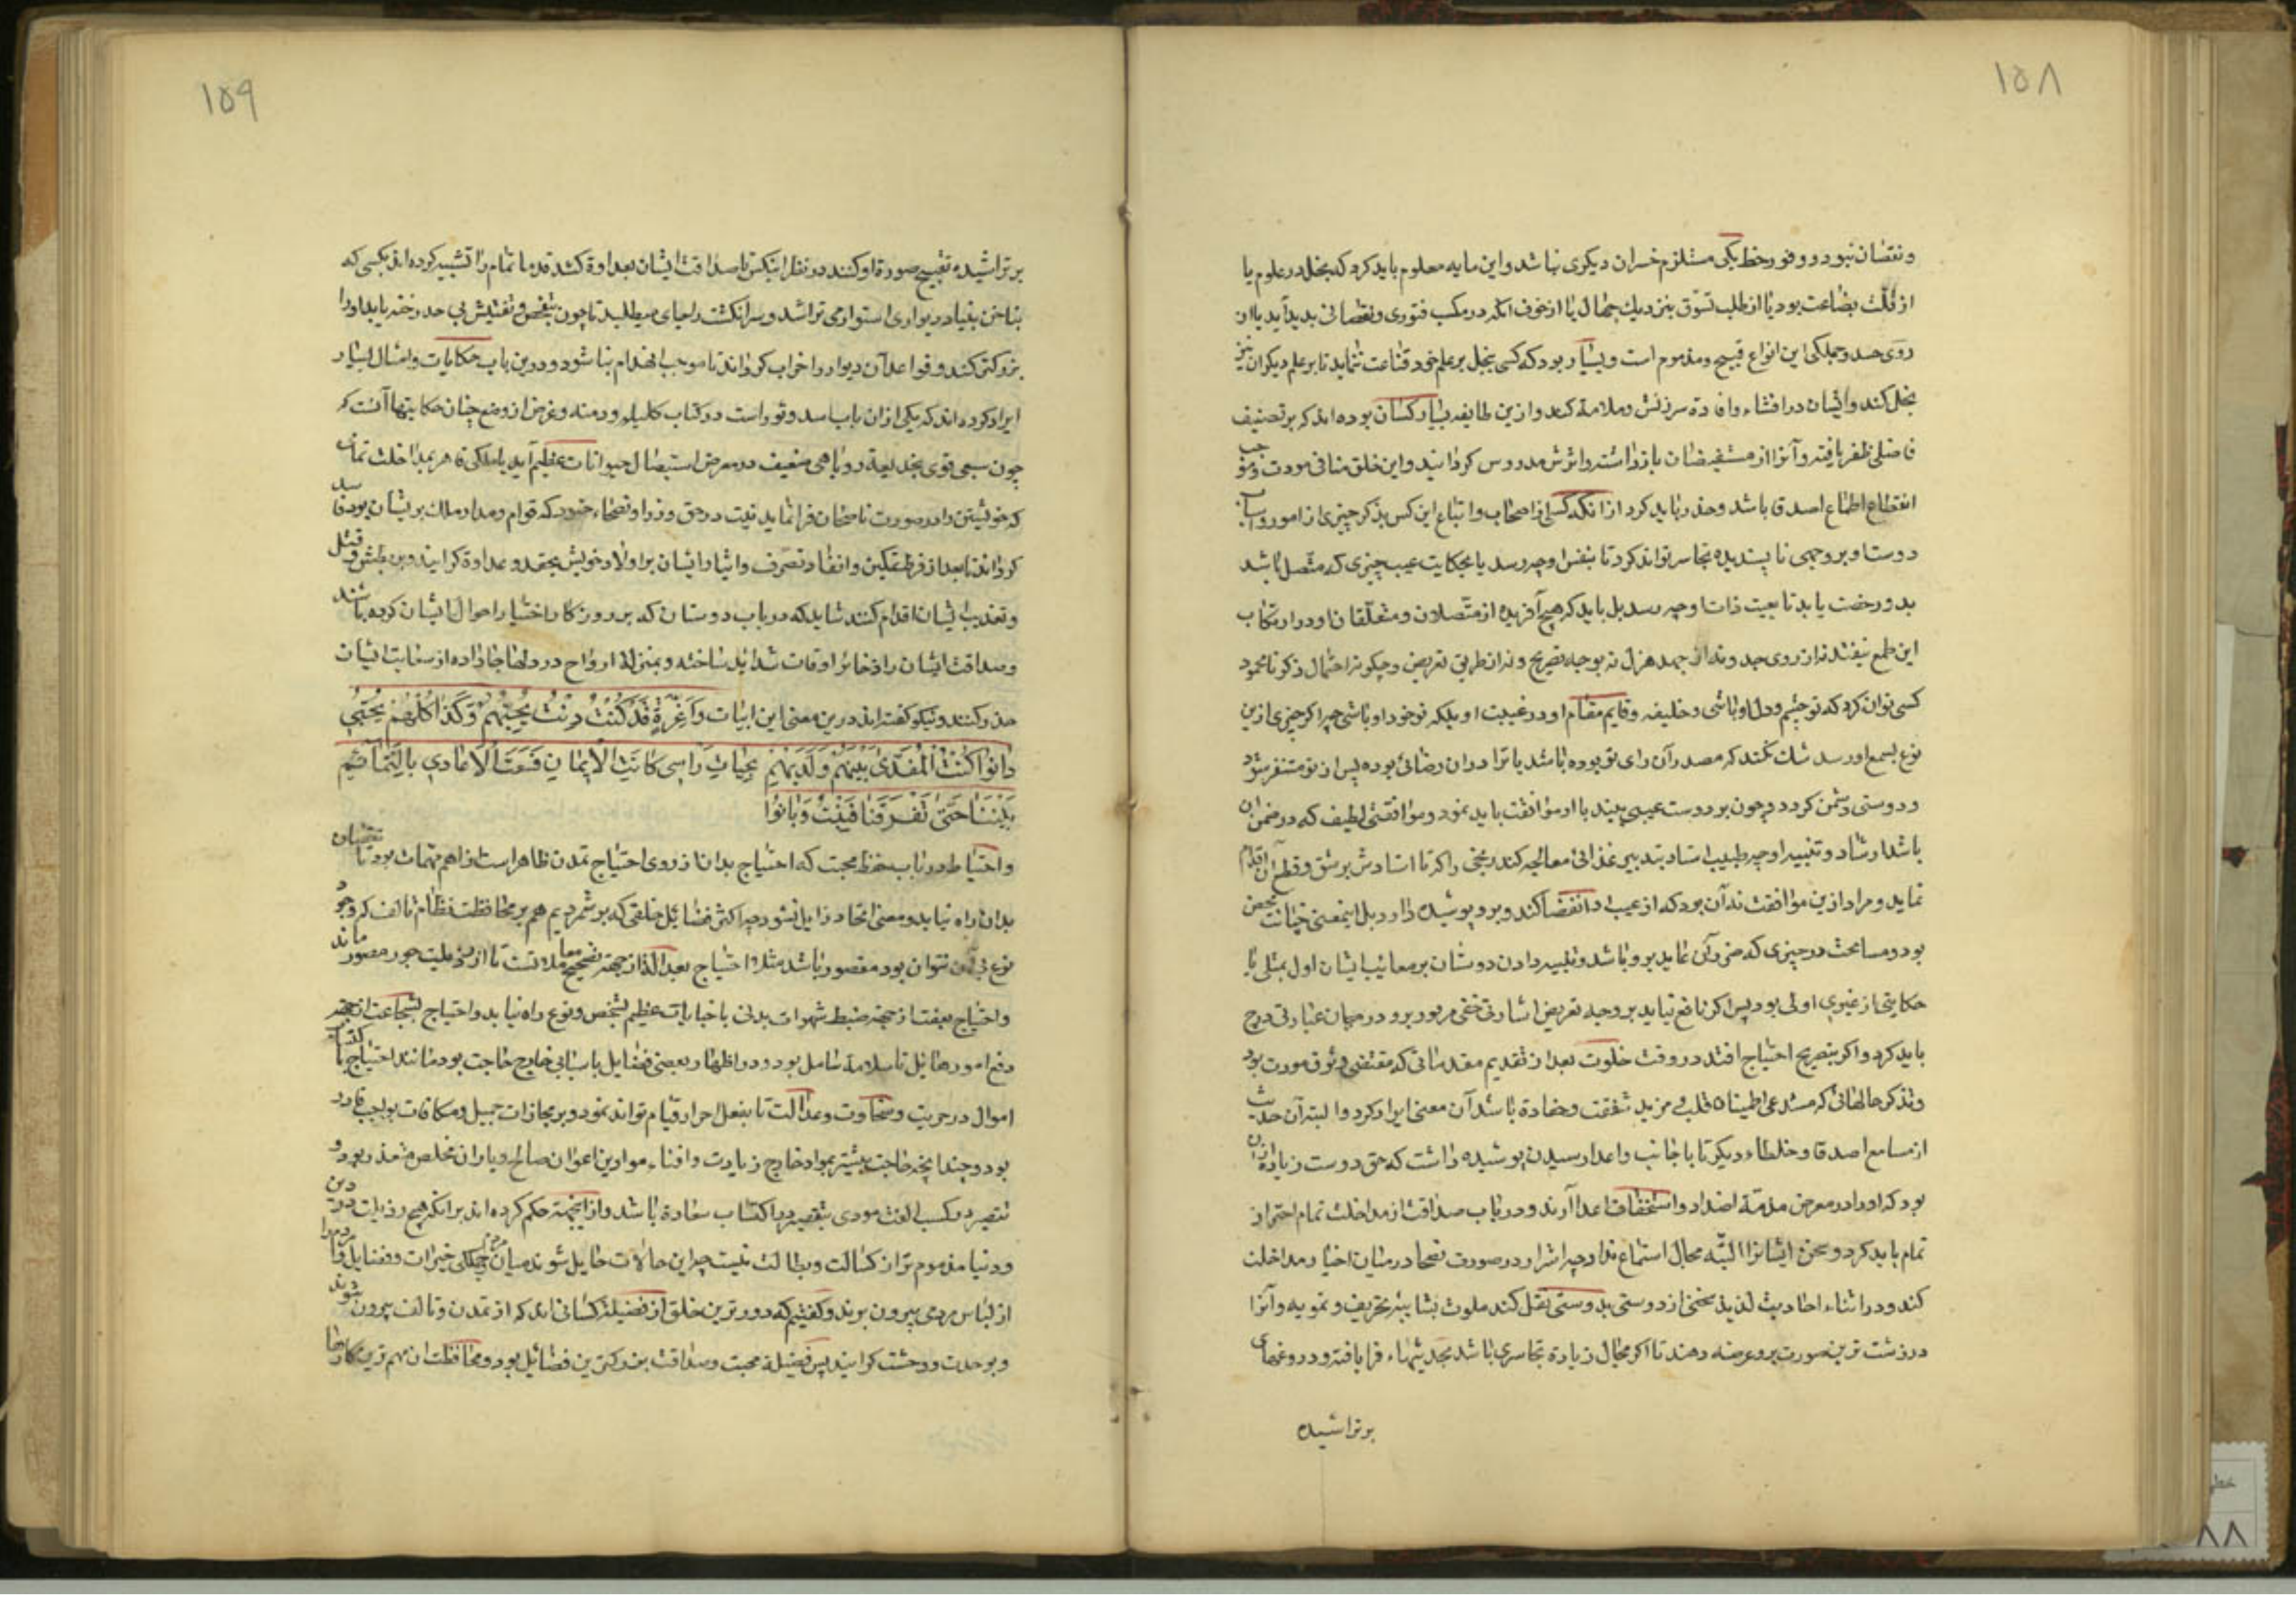 ۱۵۸
ونقصان نبود و وفور حظ یکی مستلزم خسران دیگری نباشد و این مایه معلوم باید کرد که بخل در علوم یا
از قلت بضاعت بود یا از طلب تسوق بنزدیک جهال یا از خوف آنکه در مکسب فتوری و نقصانی بدید آید یا از
روی حسد و جملکی این انواع قبیح و مذموم است و بسیار بود که کسی ببخل بر علم خود قناعت ننماید تا بر علم دیکران نیز
بخل کند و ایشان در افشاء و افادة سرزنش و ملامة کند و ازین طایفه بسیار کسان بوده اند که بر تصنیف
فاضلی ظفر یافته و آنرا از مستفیضان باز داشته و اثرش مدروس کردانیده و این خلق منافی مودت و موجب
انقطاع اطماع اصدقا باشد و حذر باید کرد از آنکه کسی از اصحاب و اتباع این کس بذکر چیزی از امور و اسباب
دوستا و بر وجهی نابسندیده تجاسر تواند کرد تا بنفس او چه رسد یا بحکایت عیب چیزی که متصل باشد
بدو رخصت یابد تا بعیب ذات او چه رسد بل باید که هیچ آفریده از متصلان و متعلقان او در ارتکاب
این طمع نیفتد نه از روی جد و نه از جهد هزل نه بوجه تصریح و نه از طریق تعریض و چکونه احتمال ذکر نامحمود
کسی توان کرد که تو چشم و دل او باشی و خلیفه و قایم مقام او در غیبت او بلکه تو خود او باشی چه اکر چیزی ازین
نوع بسمع او رسد شک نکند که مصدر آن رای تو بوده باشد یا ترا در آن رضائی بوده پس از تو متنفر شود
و دوستی دشمن کردد و چون بر دوست عیبی بیند با او موافقت باید نمود و موافقتی لطیف که در ضمن آن
باشد ارشاد و تنبیه او چه طبیب استاد بتدبیر غذائی معالجه کند رنجی را که نا استادش بر شق و قطع آن اقدام
نماید و مراد ازین موافقت نه آن بود که از عیب او اغضا کند و برو پوشیده دارد بل اینمعنی خیانت محض
بود و مسامحت در چیزی که ضرر آن عاید برو باشد و تنبیه دادن دوستان بر معایب ایشان اول بمثلی یا
حکایتی از غیری اولی بود پس اکر نافع نیاید بر وجه تعریض اشارتی خفی مر بود برو در میان عبارتی درج
باید کرد و اکر بتصریح احتیاج افتد در وقت خلوت بعد از تقدیم مقدماتی که مقتضی وثوق مودت بود
و تذکر حالهائی که مستدعی اطمینان قلب و مزید شفقت و حفادة باشد آن معنی ایراد کرد و البته آن حدیث
از مسامع اصدقا و خلطاء دیکر تا با جانب و اعدا رسیدن پوشیده داشت که حق دوست زیاده از آن
بود که او را در معرض مذمة اضداد و استخفاف اعدا آرند و در باب صداقت از مداخلت نمام احتراز
تمام باید کرد و سخن ایشانرا البته مجال استماع نداد چه اشرار در صورت نصحا در میان اخیار مداخلت
کند و در اثناء احادیث لذیذ سخنی از دوستی بدوستی نقل کند ملوث بشایبه تحریف و تمویه و آنرا
در زشت ترین صورت برو عرضه دهند تا اکر مجال زیادة تجاسری باشد بحدیثهاء فرا بافته و دروغهای
بر تراشیده
۱۵۹
بر تراشیده تقبیح صورة او کنند در نظر اینکس تا صداقت ایشان بعداوة کشد قدما نمام را تشبیه کرده اند بکسی که
بناخن بنیاد دیواری استوار می تراشد و سر انکشت را جای میطلبد تا چون بتفحص و تفتیش بی حد رخنه یابد او را
بزرکتر کند و قواعد آن دیوار را خراب کرداند تا موجب انهدام بنا شود و درین باب حکایات و امثال بسیار
ایراد کرده اند که یکی از آن باب اسد و ثور است در کتاب کلیله و دمنه و غرض از وضع چنان حکایتها آنست که
چون سبعی قوی بخدیعة روباهی ضعیف در معرض استیصال حیوانات عظیم آید یا ملکی قاهر بمداخلت نمامی
که خویشتن را در صورت ناصحان فرا نماید نیت در حق وزرا و نصحاء خود که قوام و مدار ملک بر ایشان بود فاسد
کرداند تا بعد از فرط تمکین و انفاد تصرف و ایثار ایشان بر اولاد خویش بحقد و عداوة کرایند و بر بطش و قتل
و تعذیب ایشان اقدام کنند شاید که در باب دوستان که بروزکار اختیار احوال ایشان کرده باشند
و صداقت ایشان را ذخائر اوقات شداید ساخته و بمنزلة ارواح در دلها جا داده از سعایت ایشان
حذر کنند و نیکو کفته اند درین معنی این ابیات وَاَعِزَّةٍ قَدْ کُنْتُ دِنْتُ بِحُبِّهِمْ وَکَذا کُلُّهُمْ بِحُبّی
دانوا کُنْتُ المُفَدّی بَیْنَهُمْ وَلَدَیْهِمْ بِحَیاتِ رَاسی کانَتِ الاَیمان فَسَعَتِ الاَعادی بالنّمائم
بَیْنَنا حَتّی تَفَرَّقْنا فَبِنْتُ وَبانُوا
و احتیاط در باب حفظ محبت که احتیاج بدان از روی احتیاج تمدن ظاهر است از اهم مهمات بود تا نقصان
بدان راه نیابد و معنی اتحاد زایل نشود چه اکثر فضائل خلقی که بر شمردیم هم بر محافظت نظام تالف که وجود
نوع بی آن نتوان بود مقصور باشد مثلا احتیاج بعدالت از جهة تصحیح معاملاتست تا از رذیلیت جور مصون ماند
و احتیاج بعفت از جهة ضبط شهوات بدنی تا خیانات عظیم بشخص و نوع راه نیابد و احتیاج بشجاعت از جهة
دفع امور هائل تا سلامة شامل بود و در اظهار بعضی فضایل باسبابی خارج حاجت بود مانند احتیاج باکتساب
اموال در حریت و سخاوت و عدالت تا بفعل احرار قیام تواند نمود و بر مجازات جمیل و مکافات بواجب قادر
بود و چندانچه حاجت بیشتر بمواد خارج زیادت و اقتناء مواد بی اعوان صالح و یاران مخلص متعذر بود و
تقصیر در کسب الفت مودی بتقصیر در اکتساب سعادة باشد و از اینجهة حکم کرده اند بر انکه هیچ رذیلت در دین
و دنیا مذموم تر از کسالت و بطالت نیست چه این حالات حایل شوند میان جملکی خیرات و فضایل و مردم را
از لباس مردمی بیرون برند و کفتیم که دورترین خلق از فضیلة کسانی اند که از تمدن و تالف بیرون شوند
و بوحدت و وحشت کرایند پس فضیلة محبت و صداقت بزرکترین فضائل بود و محافظت ان مهم ترین کارها